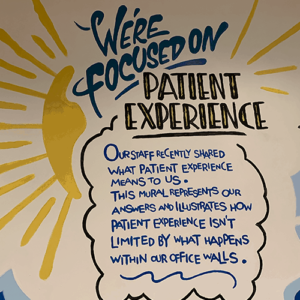 WE'RE
FOCUSED ON
PATIENT
EXPERIENCE
OUR STAFF RECENTLY SHARED
WHAT PATIENT EXPERIENCE
MEANS TO US.
THIS MURAL REPRESENTS OUR
ANSWERS AND ILLUSTRATES HOW
PATIENT EXPERIENCE ISN'T
LIMITED BY WHAT HAPPENS
WITHIN OUR OFFICE WALLS.